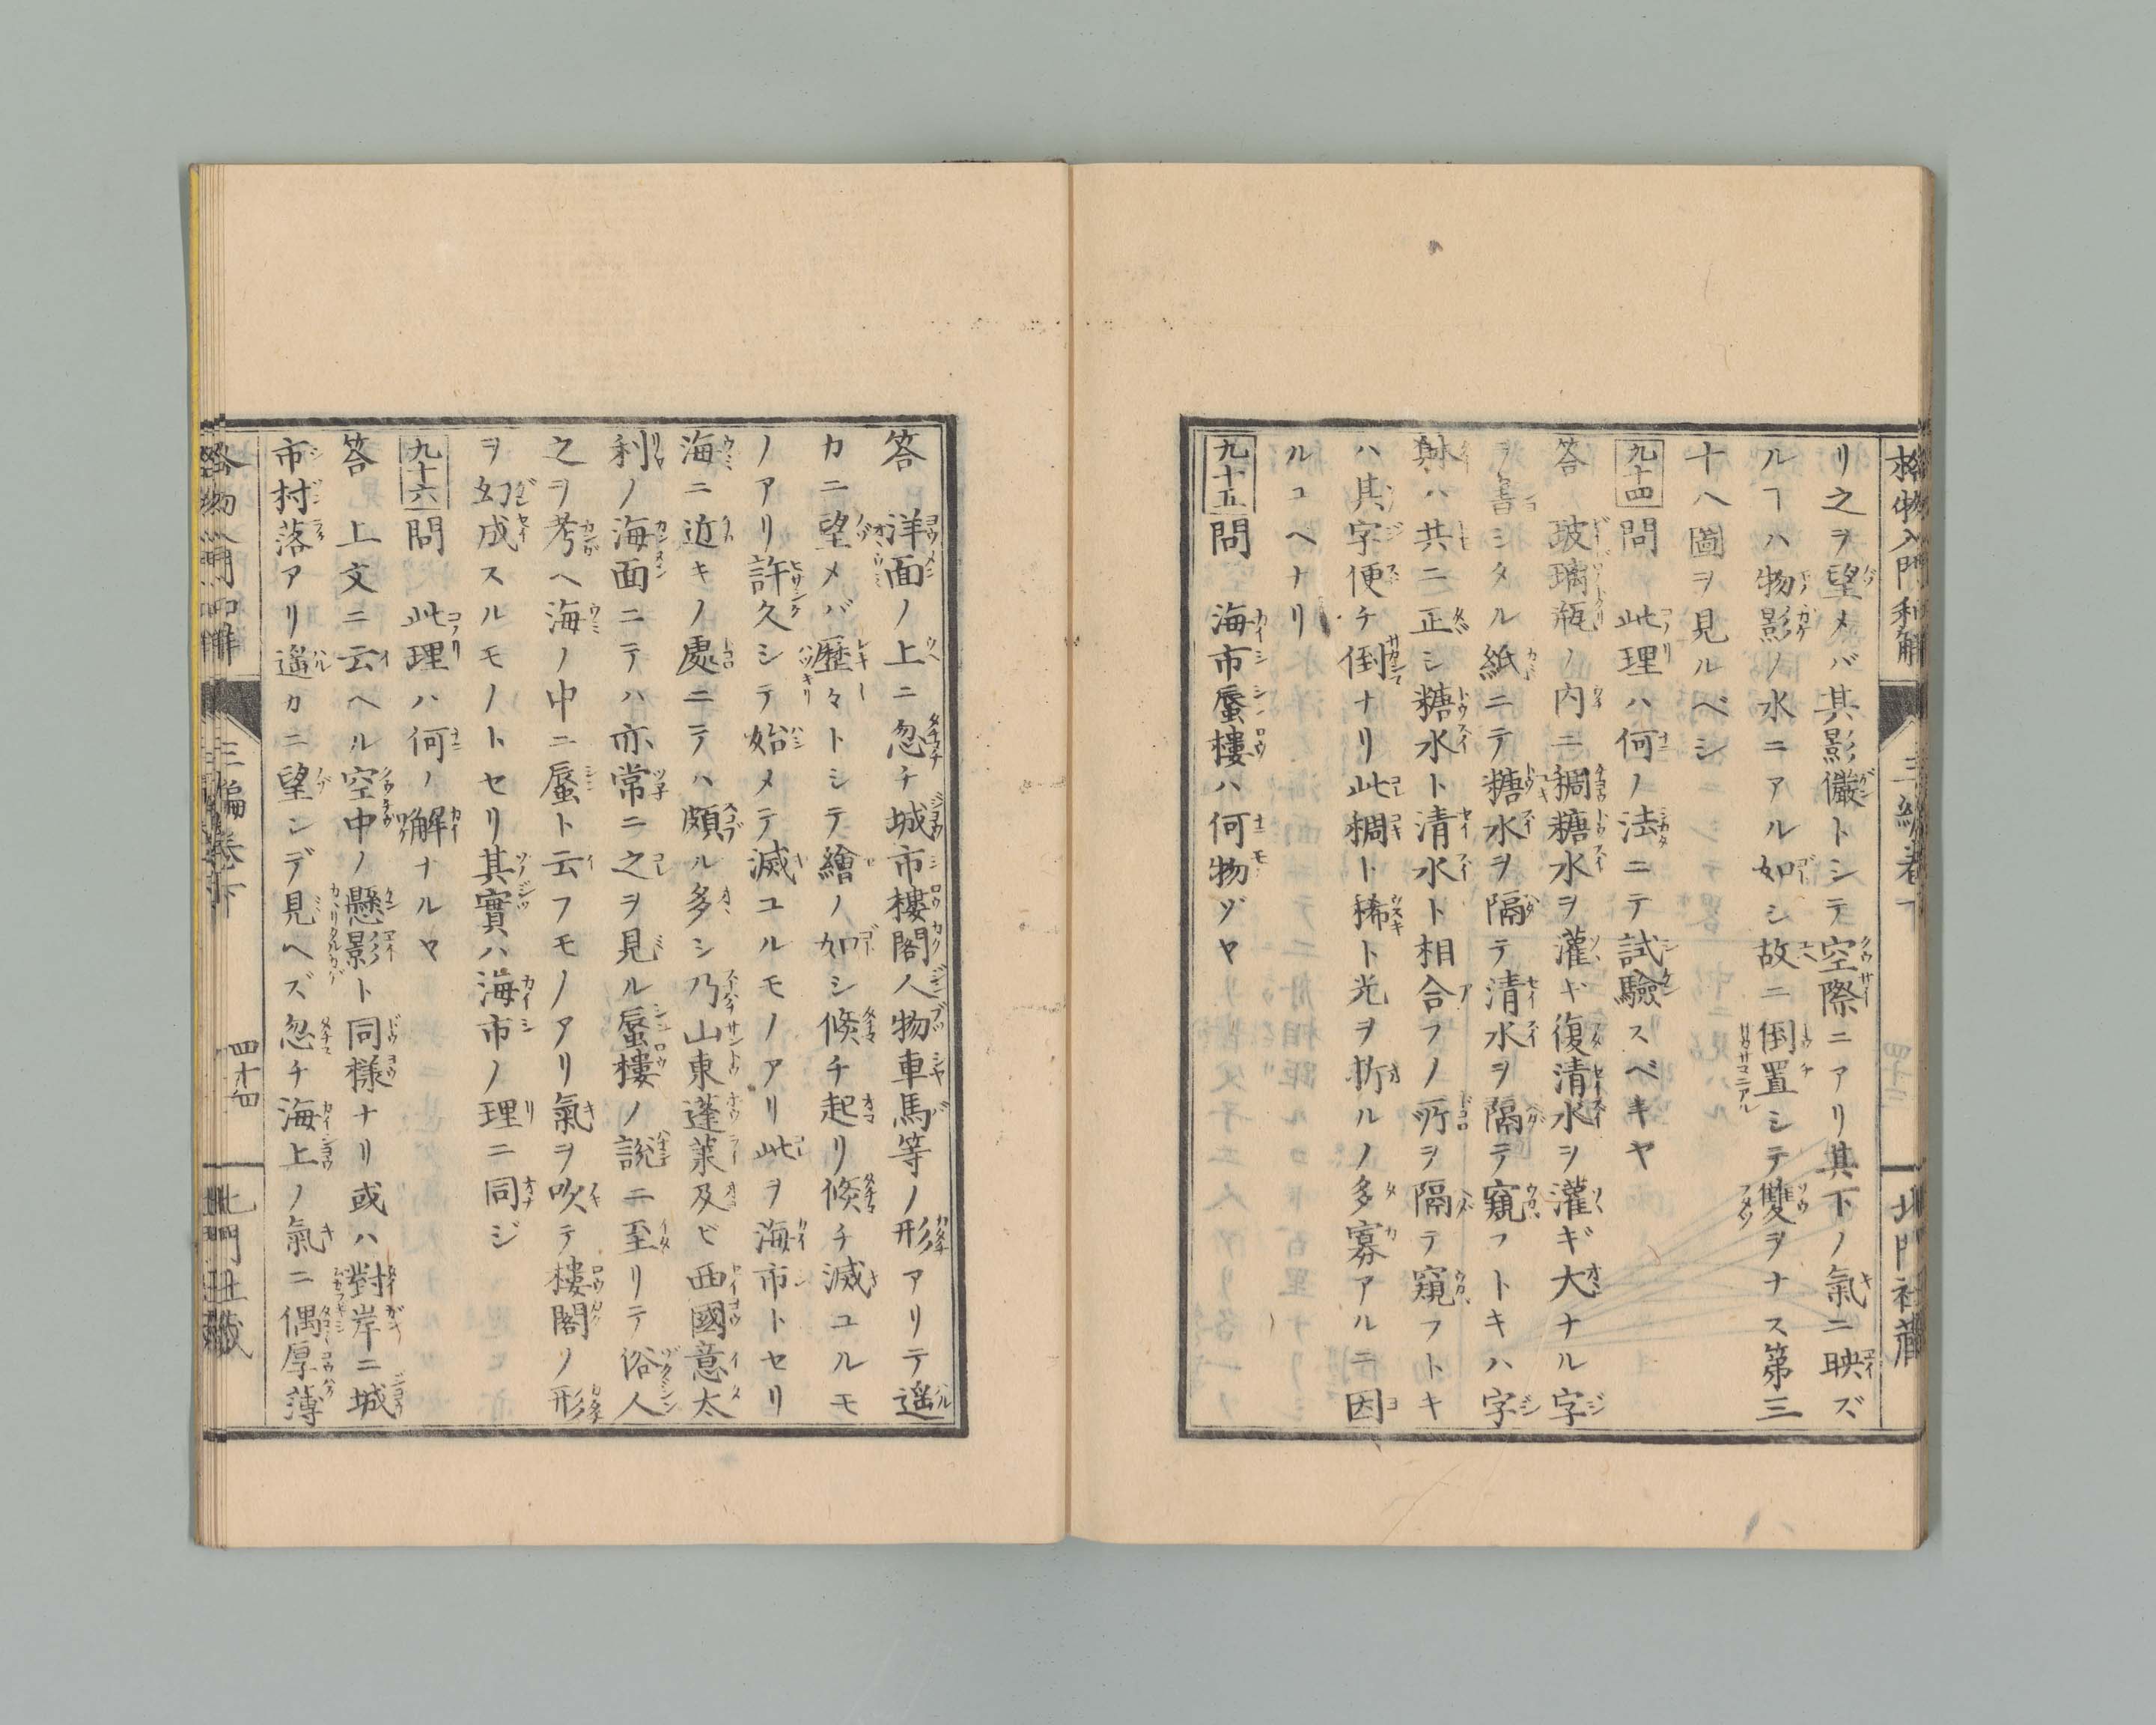 格物入門和解
三編卷下
北門社藏
リ之ヲ望メバ其影儼トシテ空際ニアリ其下ノ氣ニ映ズ
ルヿハ物影ノ水ニアル如シ故ニ倒置シテ雙ヲナス第三
十八圖ヲ見ルベシ
九十四 問 此理ハ何ノ法ニテ試驗スベキヤ
答 玻璃瓶ノ内ニ稠糖水ヲ灌ギ復清水ヲ灌ギ大ナル字
ヲ書シタル紙ニテ糖水ヲ隔テ清水ヲ隔テ窺フトキハ字
ハ共ニ正シ糖水ト清水ト相合フノ所ヲ隔テ窺フトキ
ハ其字便チ倒ナリ此稠ト稀ト光ヲ折ルノ多寡アルニ因
ルユヘナリ
九十五 問 海市蜃樓ハ何物ゾヤ
答 洋面ノ上ニ忽チ城市樓閣人物車馬等ノ形アリテ遥
カニ望メバ歷々トシテ繪ノ如シ倐チ起リ倐チ滅ユルモ
ノアリ許久シテ始メテ滅ユルモノアリ此ヲ海市トセリ
海ニ近キノ處ニテハ頗ル多シ乃山東蓬萊及ビ西國意太
利ノ海面ニテハ亦常ニ之ヲ見ル蜃樓ノ說ニ至リテ俗人
之ヲ考ヘ海ノ中ニ蜃ト云フモノアリ氣ヲ吹テ樓閣ノ形
ヲ幻成スルモノトセリ其實ハ海市ノ理ニ同ジ
九十六 問 此理ハ何ノ解ナルヤ
答 上文ニ云ヘル空中ノ懸影ト同樣ナリ或ハ對岸ニ城
市村落アリ遥カニ望ンデ見ヘズ忽チ海上ノ氣ニ偶厚薄
格物入門和解
三編卷下
四十四
北門社藏